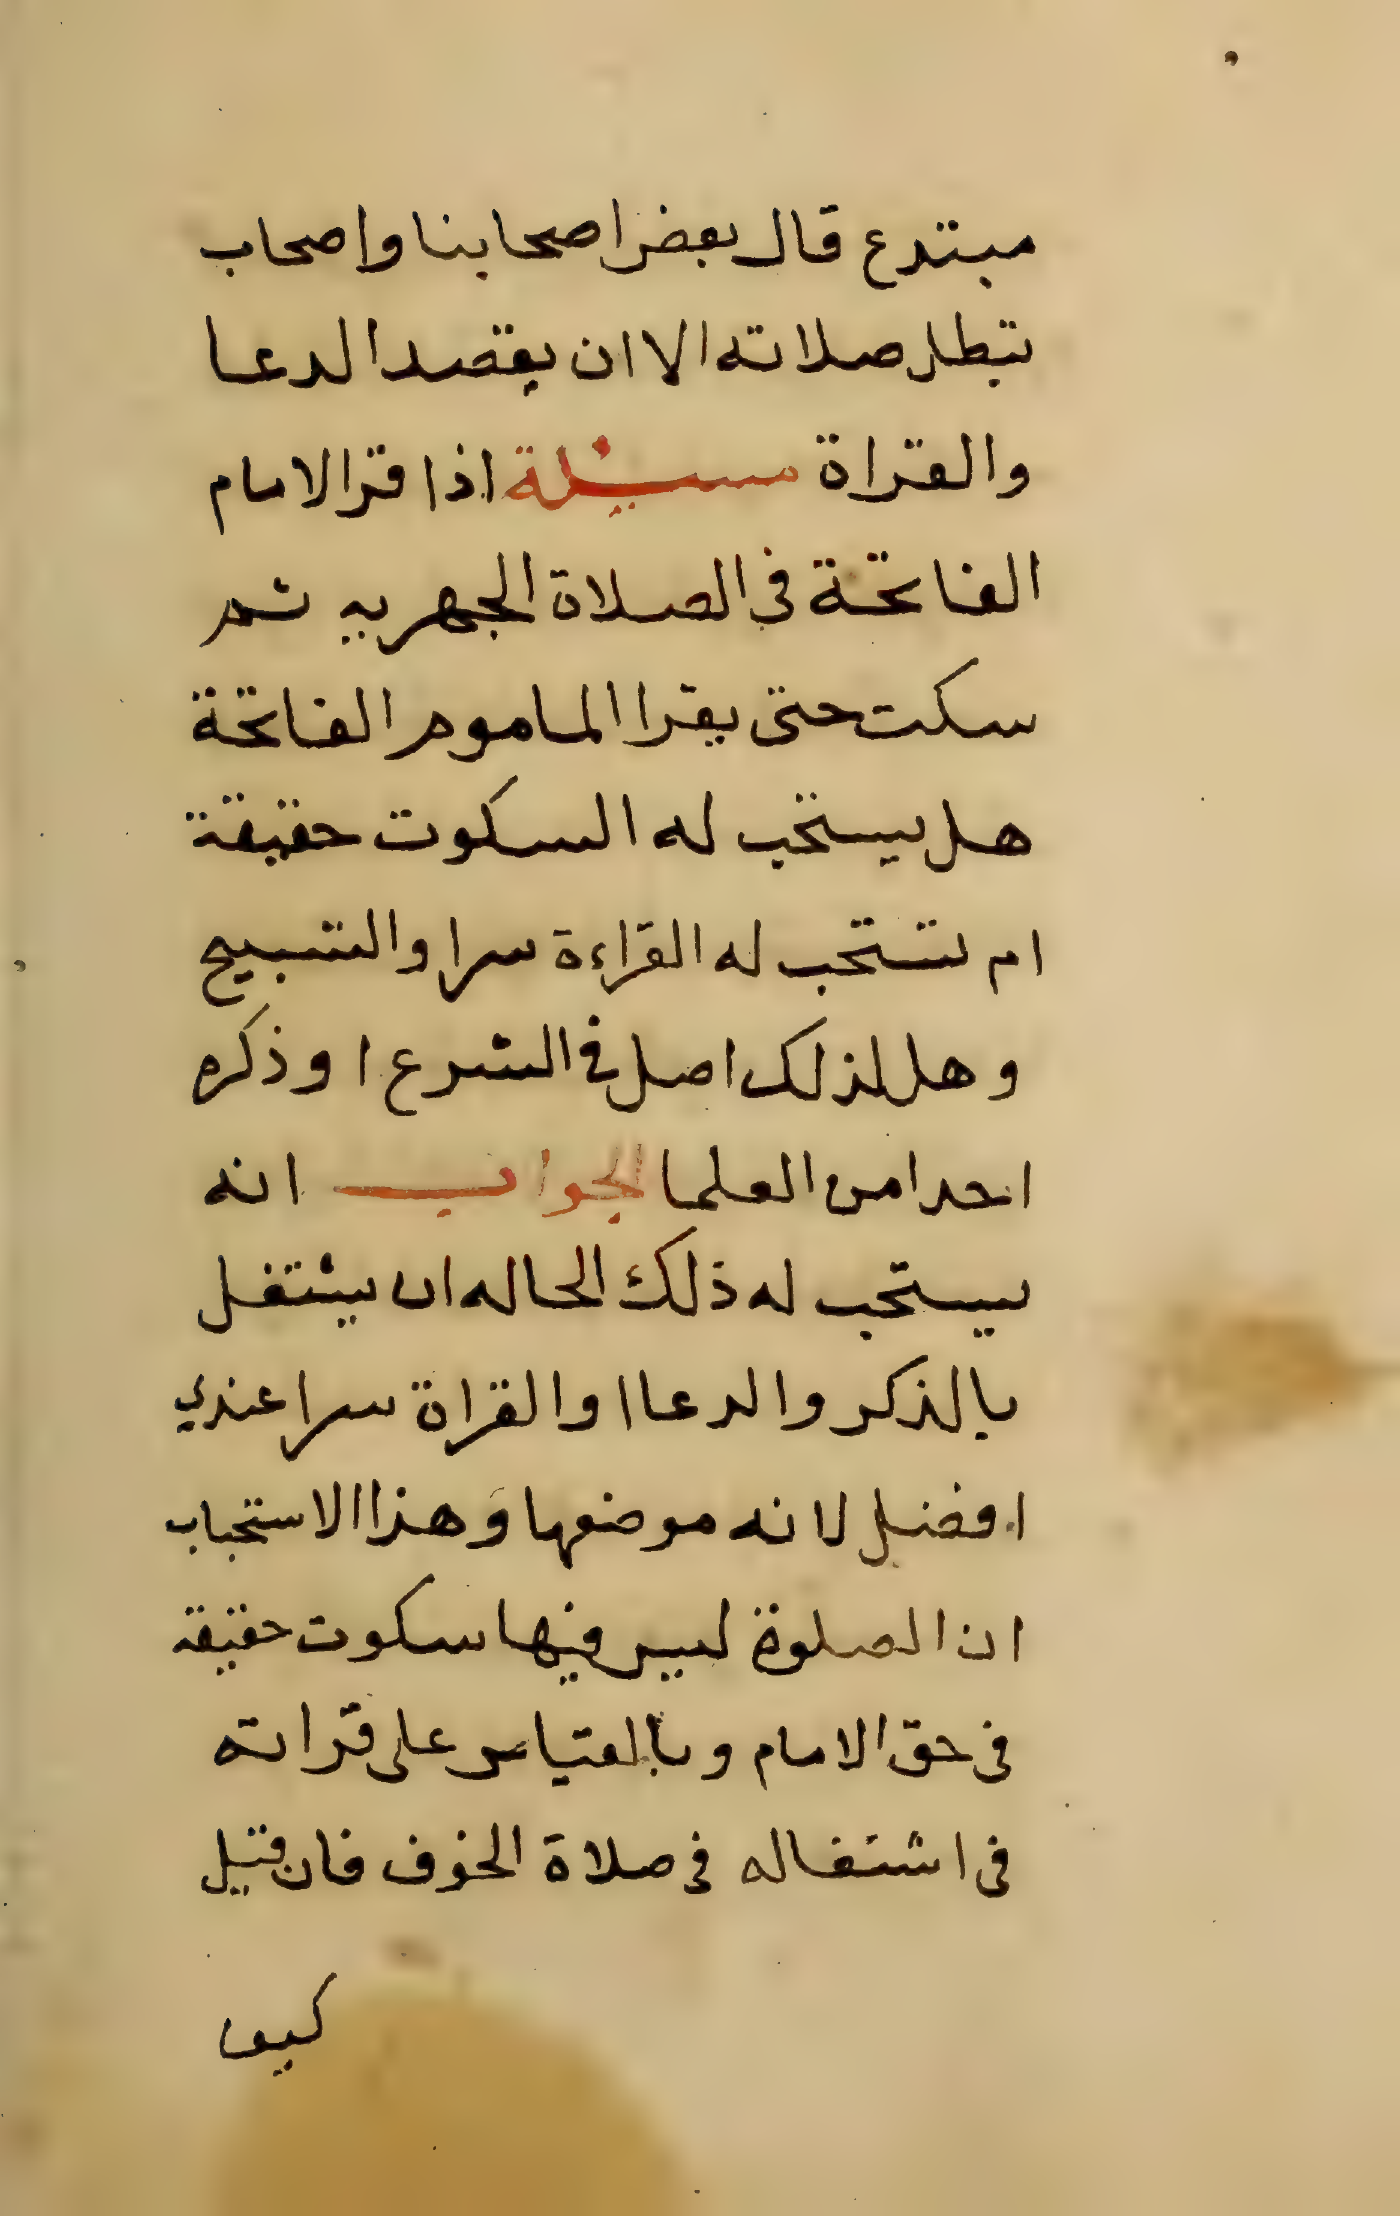 مبتدع قال بعض اصحابنا واصحاب
تبطل صلاته الا ان يقصد الدعا
والقراة مسئلة اذا قرا الامام
الفاتحة في الصلاة الجهريه ثم
سكت حتى يقرا الماموم الفاتحة
هل يستحب له السكوت حقيقة
ام تستحب له القراءة سرا والتسبيح
وهل لذلك اصل في الشرع او ذكره
احدا من العلما الجواب انه
يستحب له ذلك الحاله ان يشتغل
بالذكر والدعاا والقراة سرا عندي
افضل لانه موضعها وهذا الاستحباب
ان الصلوة ليس فيها سكوت حقيقة
في حق الامام وبالقياس على قراته
في اشتغاله في صلاة الخوف فان قيل
كيف